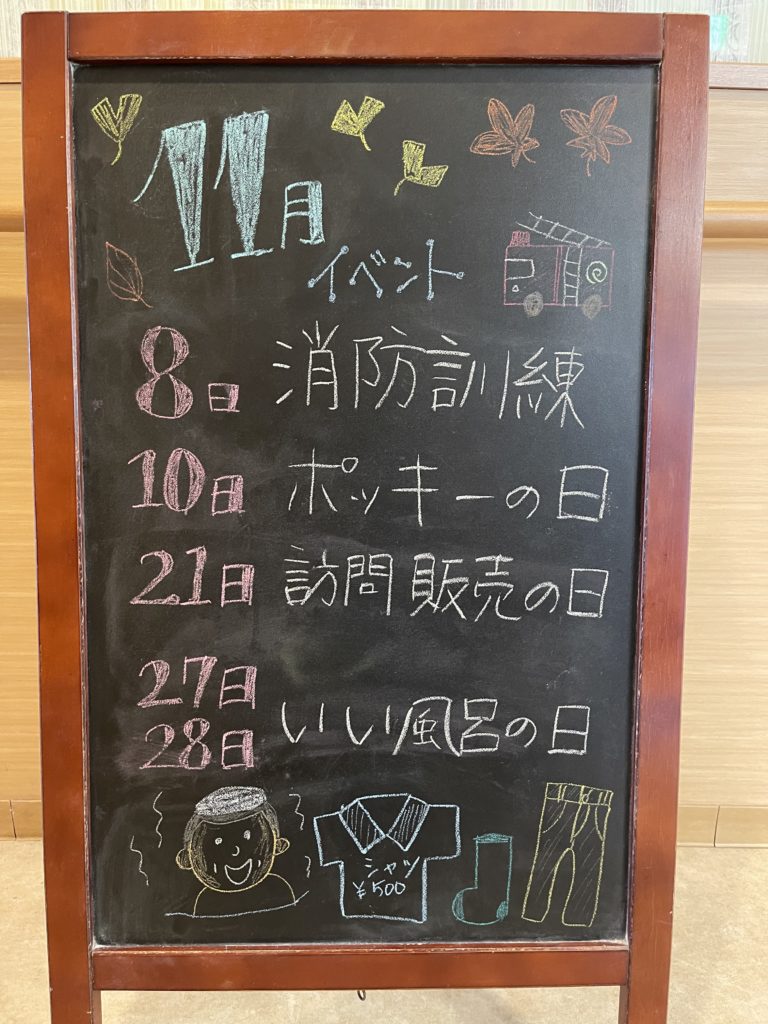 11月
イベント
8日 消防訓練
10日 ポッキーの日
21日 訪問販売の日
27日
28日 いい風呂の日
シャツ
¥500